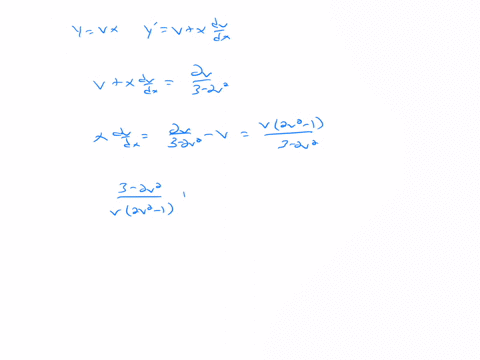 y = vx   y' = v + x dv/dx
v + x dv/dx = 2v/(3-2v²)
x dv/dx = 2v/(3-2v²) - v = v(2v²-1)/(3-2v²)
(3-2v²)/(v(2v²-1))